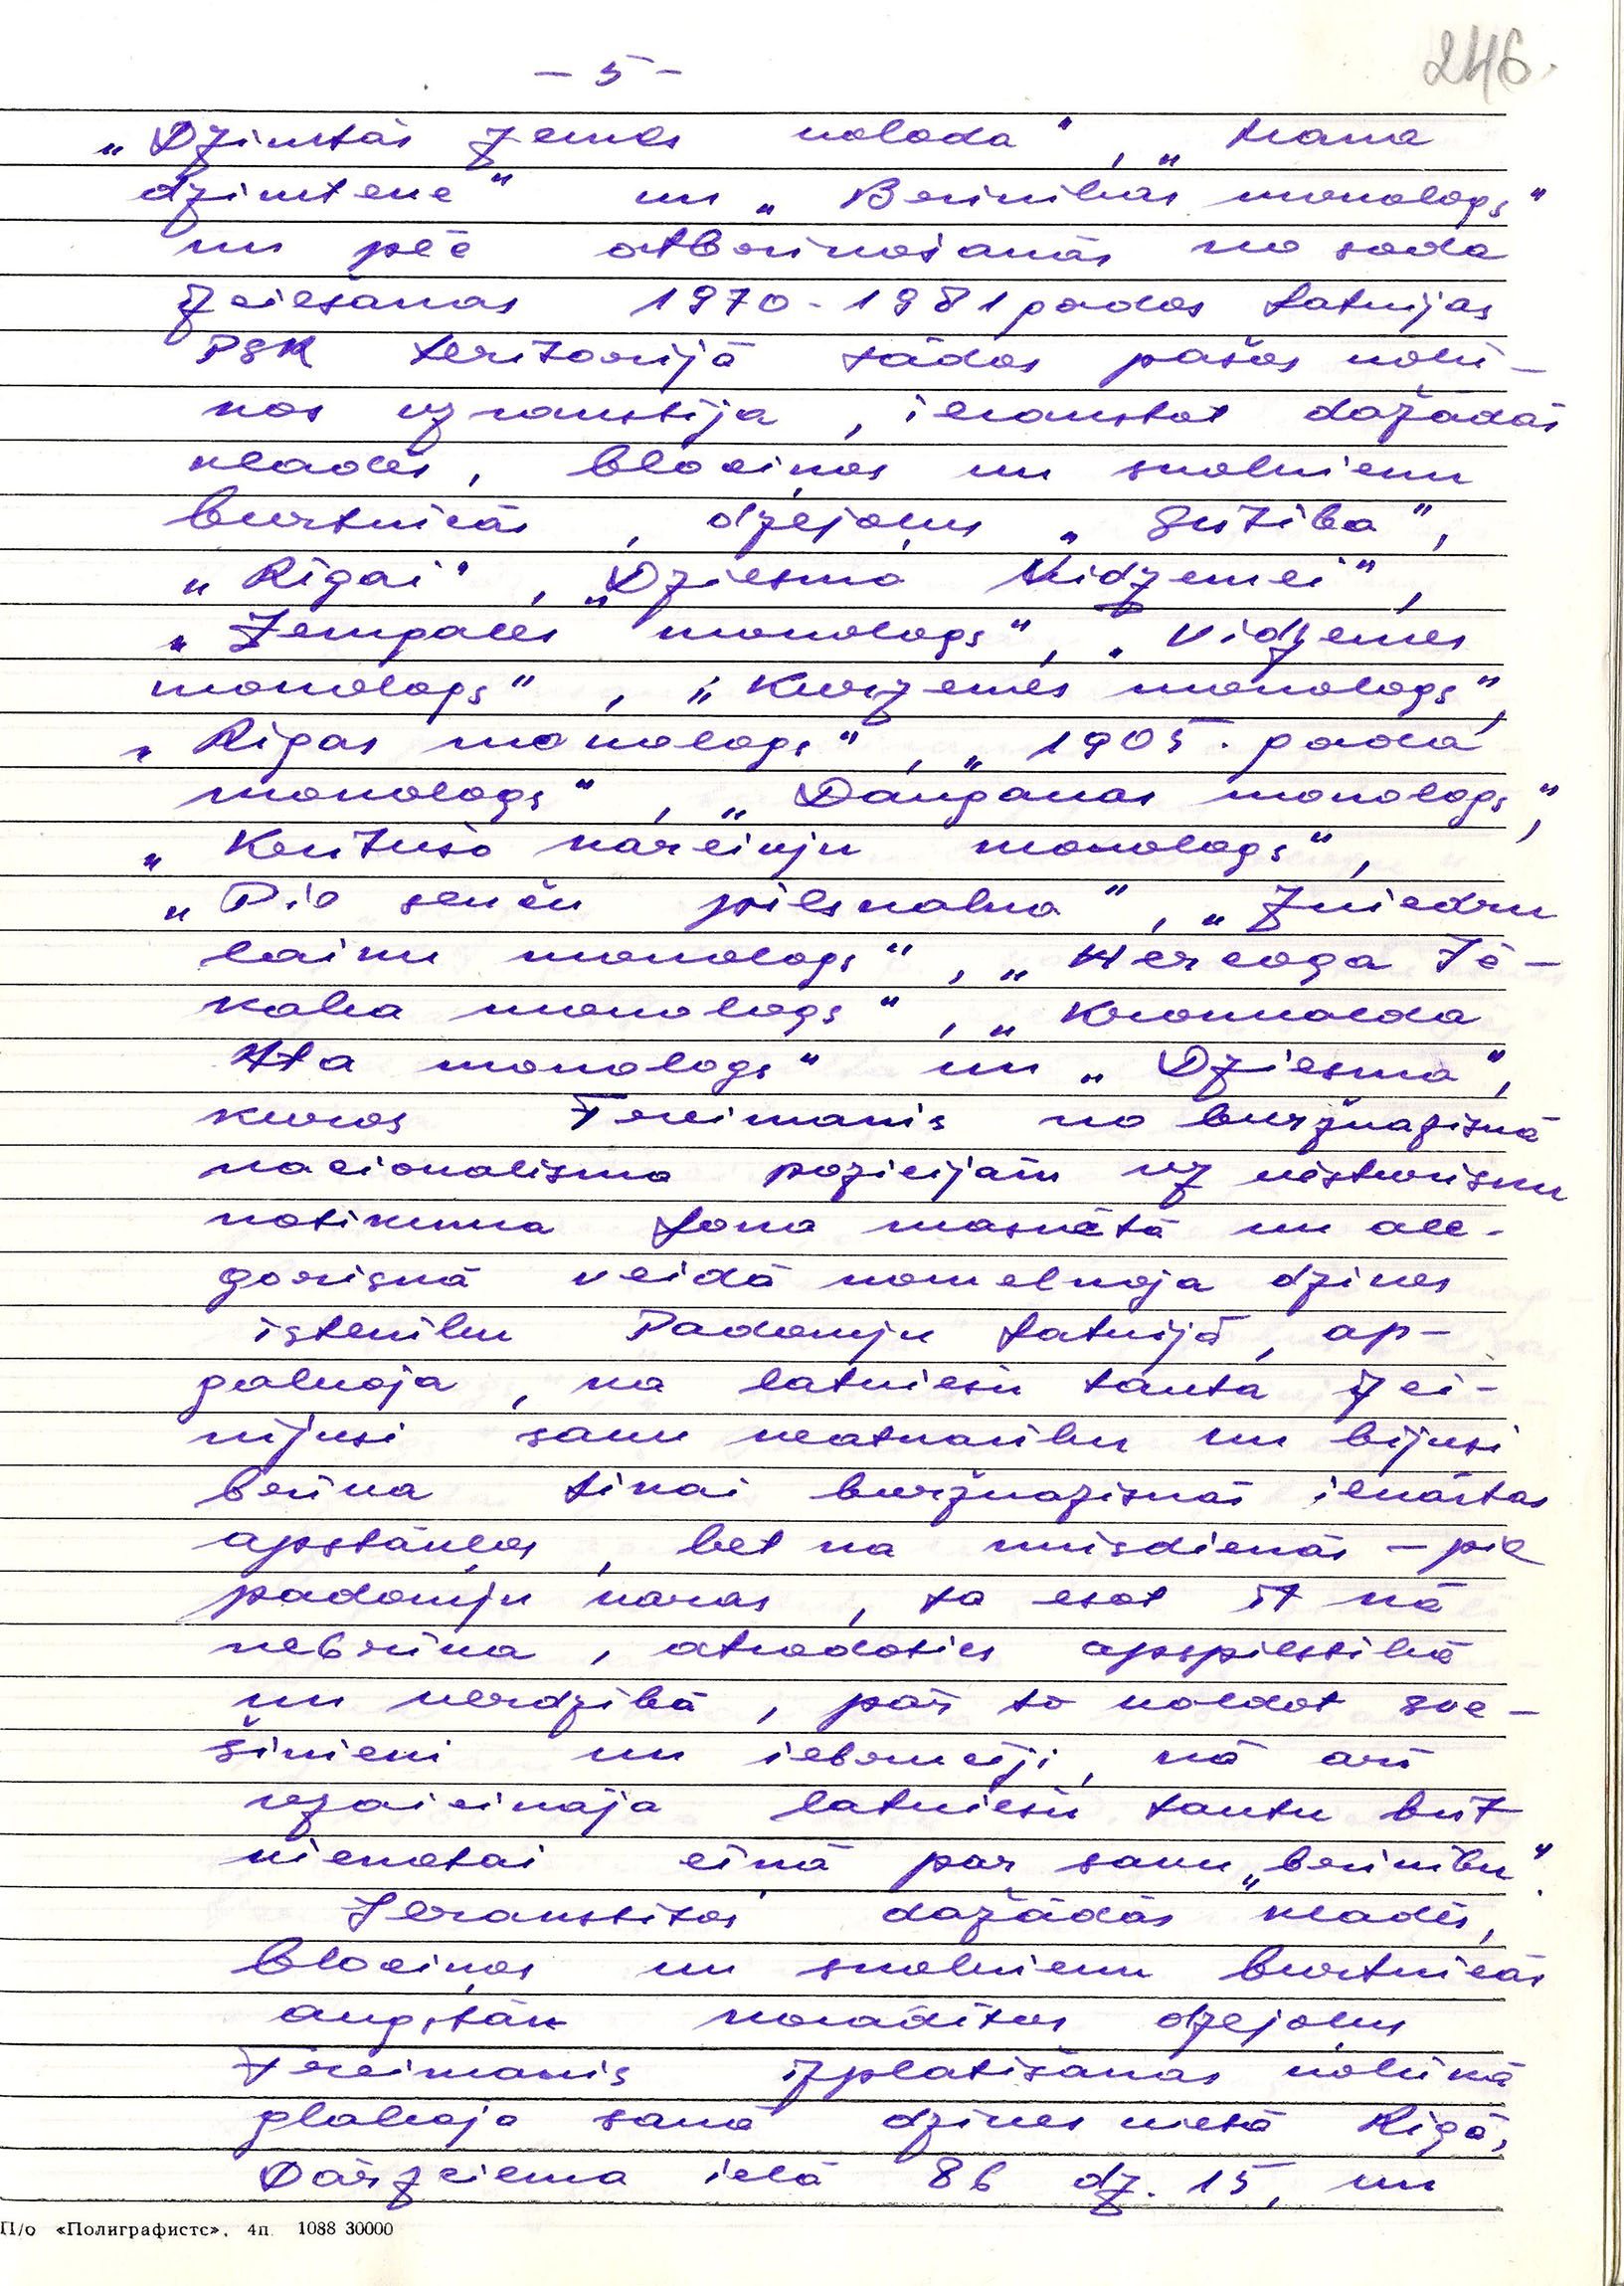 - 5 -
246.
„Dzimtās zemes valoda", „Mana
dzimtene" un „Brīvības monologs"
un pēc atbrīvošanās no soda
izciešanas 1970-1981 gados Latvijas
PSR teritorijā tādos pašos nolū-
kos uzrakstīja, ierakstot dažādās
kladēs, blociņos un skolnieku
burtnīcās, dzejoļus „Sutība",
„Rīgai", „Dziesma Vidzemei",
„Zemgales monologs", „Vidzemes
monologs", „Kurzemes monologs",
„Rīgas monologs", „1905. gada
monologs", „Daugavas monologs",
„Kritušo kareivju monologs",
„Pie senču pilskalna", „Zviedru
laiku monologs", „Hercoga Jē-
kaba monologs", „Kronvalda
Ata monologs" un „Dziesma",
kuros Freimanis no buržuāziskā
nacionālisma pozīcijām uz vēsturisku
notikumu fona maskētā un ale-
goriskā veidā nomelnoja dzīves
īstenību Padomju Latvijā, ap-
galvoja, ka latviešu tauta izcī-
nījusi savu neatkarību un bijusi
brīva tikai buržuāziskās iekārtas
apstākļos, bet ka mūsdienās - pie
padomju varas, tā esot it kā
nebrīva, atrodoties apspiestībā
un verdzībā, pār to valdot sve-
šinieki un iebrucēji, kā arī
uzaicināja latviešu tautu būt
vienotai cīņā par savu „brīvību".
Ierakstītos dažādās kladēs,
blociņos un skolnieku burtnīcās
augstāk norādītos dzejoļus
Freimanis izplatīšanas nolūkā
glabāja savā dzīves vietā Rīgā,
Dārzciema ielā 86 dz. 15, un
П/о «Полиграфистс». 4п. 1088 30000